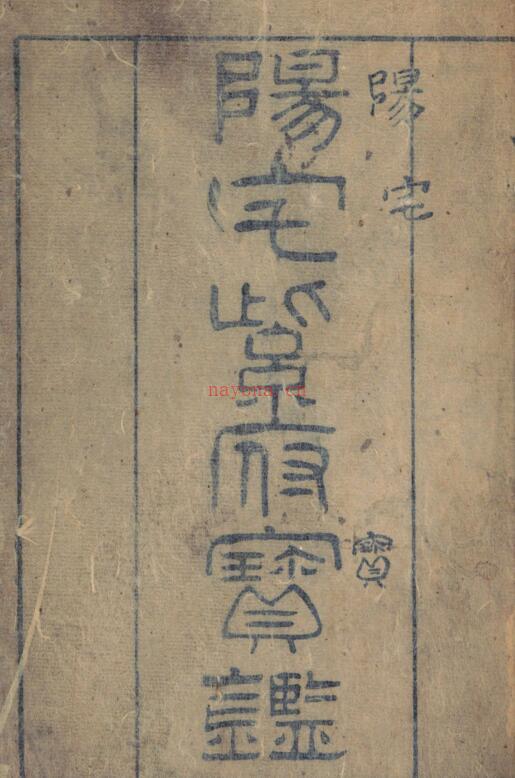 陽宅
寳
陽宅紫府寶鑑
nayona.cn